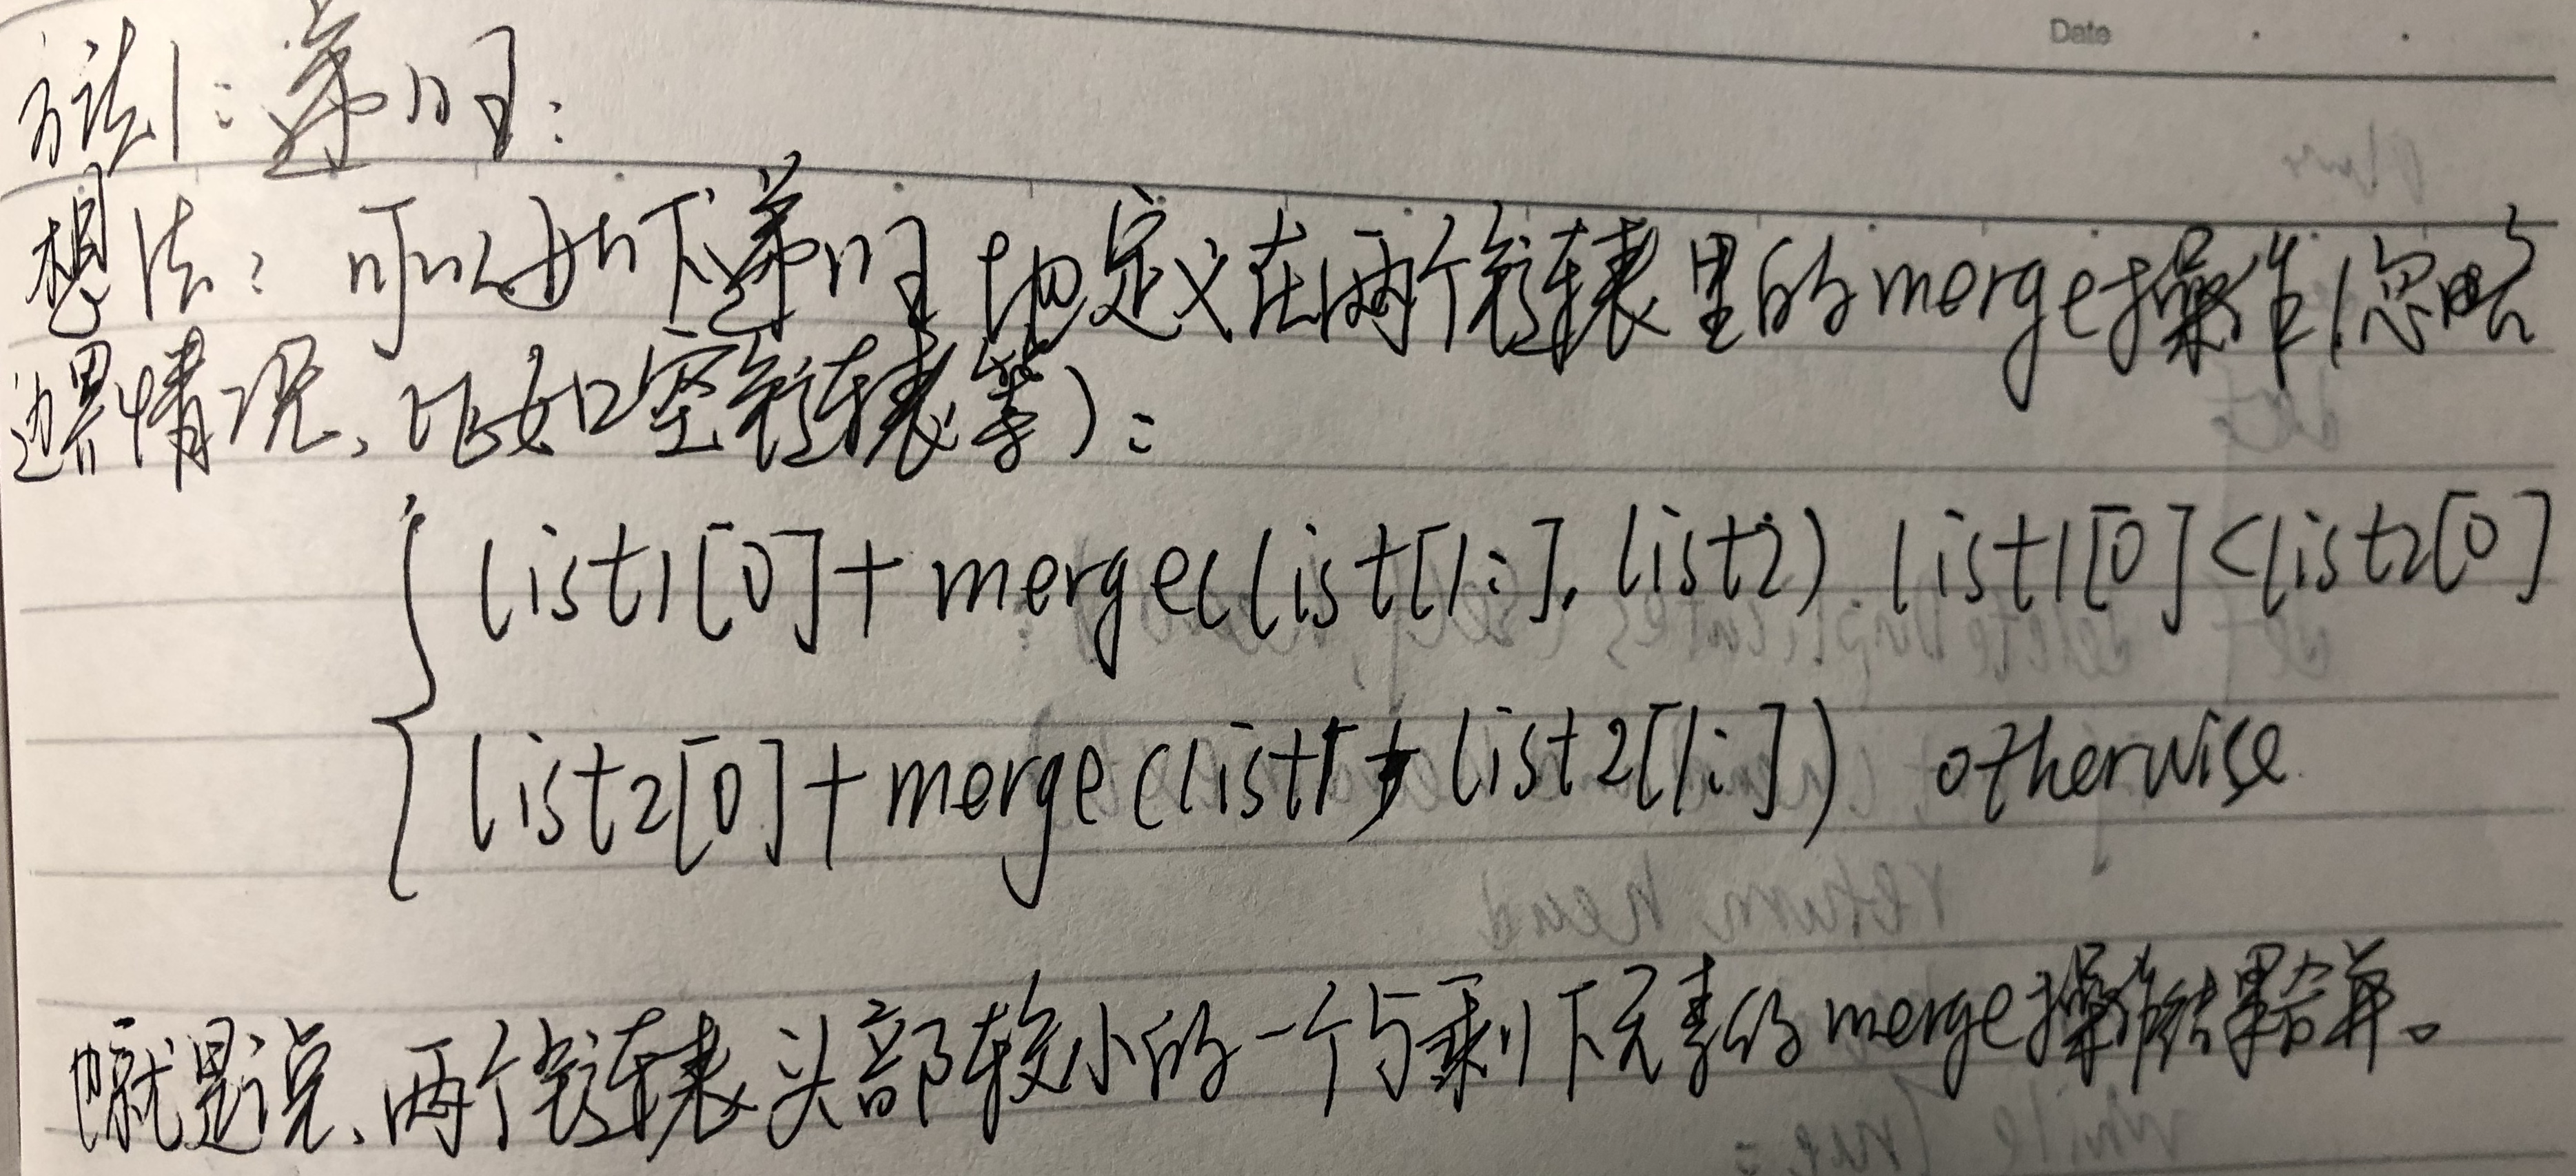 Date
方法1:递归:
想法:可以如下递归地定义在两个链表里的merge操作(忽略
边界情况、比如空链表等):
list1[0]+merge(list[1:], list2) list1[0]<list2[0]
list2[0]+merge(list1, list2[1:]) otherwise
也就是说、两个链表头部较小的一个与剩下元素的merge操作结果合并。